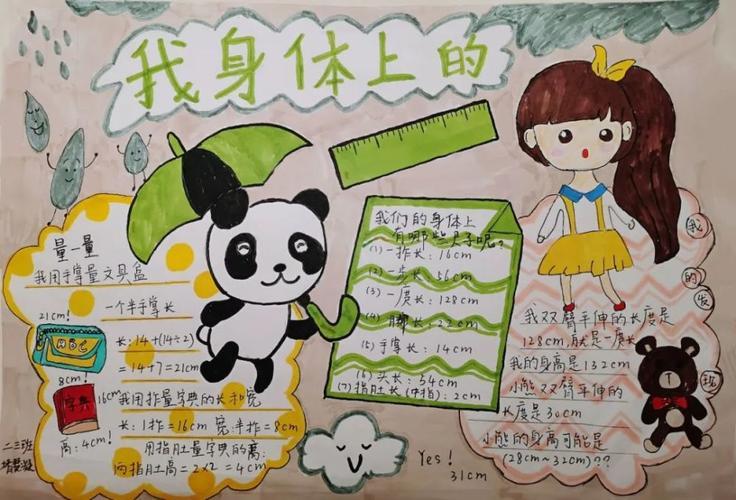 我身体上的
量一量
我用手掌量文具盒
21cm!
一个半手掌长
长:14+(14÷2)
=14+7=21cm
ABC
8cm!
字典
16cm
高:4cm!
我用拃量字典的长和宽
长:1拃=16cm 宽:半拃=8cm
用指肚量字典的高:
两指肚高=2×2=4cm
二三班
我们的身体上
有哪些尺子呢?
(1)一拃长:16cm
(2)一步长:56cm
(3)一度长:128cm
(4)脚长:22cm
(5)手掌长:14cm
(6)头长:54cm
(7)指肚长(中指):2cm
我的发现
我双臂平伸的长度是
128cm,就是一度长
我的身高是132cm
小熊双臂平伸的
长度是30cm
小熊的身高可能是
(28cm~32cm)??
Yes!
31cm